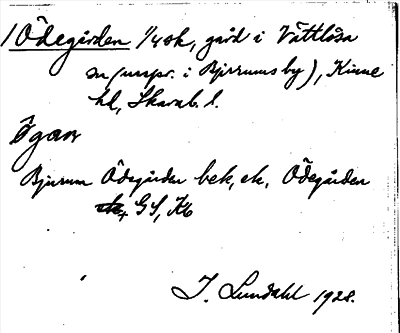 1 Ödegården 1/4 sk, gård i Vättlösa
sn (urspr. i Bjurums by), Kinne
hd, Skarab. l.
Ögan
Bjurum Ödegården bek, ek. Ödegården
GS, Kb
I. Lundahl 1928.